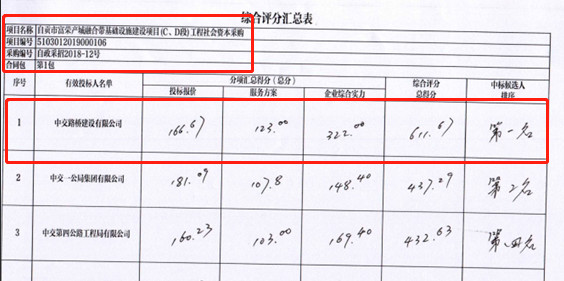 综合评分汇总表
项目名称 自贡市富荣产城融合带基础设施建设项目(C、D段)工程社会资本采购
项目编号 5103012019000106
采购编号 自政采招2018-12号
合同包 第1包
序号 有效投标人名单 分项汇总得分(总分) 综合评分总得分 中标候选人排序
投标报价 服务方案 企业综合实力
1 中交路桥建设有限公司 166.67 123.00 322.00 611.67 第一名
2 中交一公局集团有限公司 181.09 107.8 148.40 437.29 第2名
3 中交第四公路工程局有限公司 160.23 103.00 169.40 432.63 第名